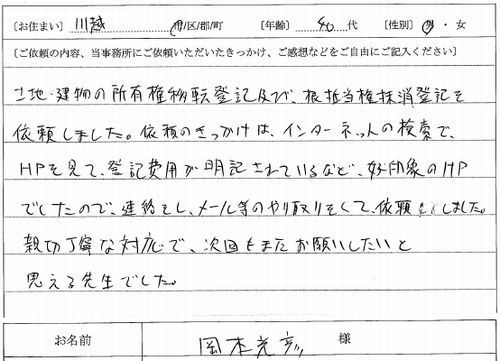 [お住まい] 川越 市/区/郡/町 [年齢] 40 代 [性別] 男・女
[ご依頼の内容、当事務所にご依頼いただいたきっかけ、ご感想などをご自由にご記入ください]
土地・建物の所有権移転登記及び、根抵当権抹消登記を
依頼しました。依頼のきっかけは、インターネットの検索で、
HPを見て、登記費用が明記されているなど、好印象のHP
でしたので、連絡をし、メール等のやり取りをして、依頼をしました。
親切丁寧な対応で、次回もまたお願いしたいと
思える先生でした。
お名前 岡本 様